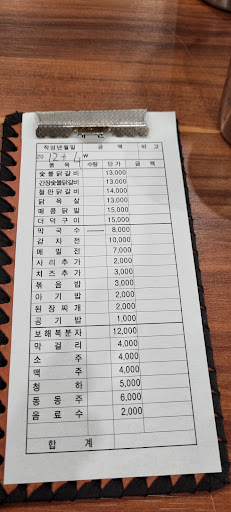 작성년월일 금 액 비 고
20 12 + 4 ₩
품 목 수량 단 가 금 액
숯불닭갈비 13,000
간장숯불닭갈비 13,000
철판닭갈비 14,000
닭 목 살 13,000
매콤닭발 15,000
더덕구이 15,000
막 국 수 8,000
감 자 전 10,000
메 밀 전 7,000
사리추가 2,000
치즈추가 3,000
볶 음 밥 3,000
아 기 밥 2,000
된장찌개 2,000
공 기 밥 1,000
보해복분자 12,000
막 걸 리 4,000
소 주 4,000
맥 주 4,000
청 하 5,000
동 동 주 6,000
음 료 수 2,000
합 계